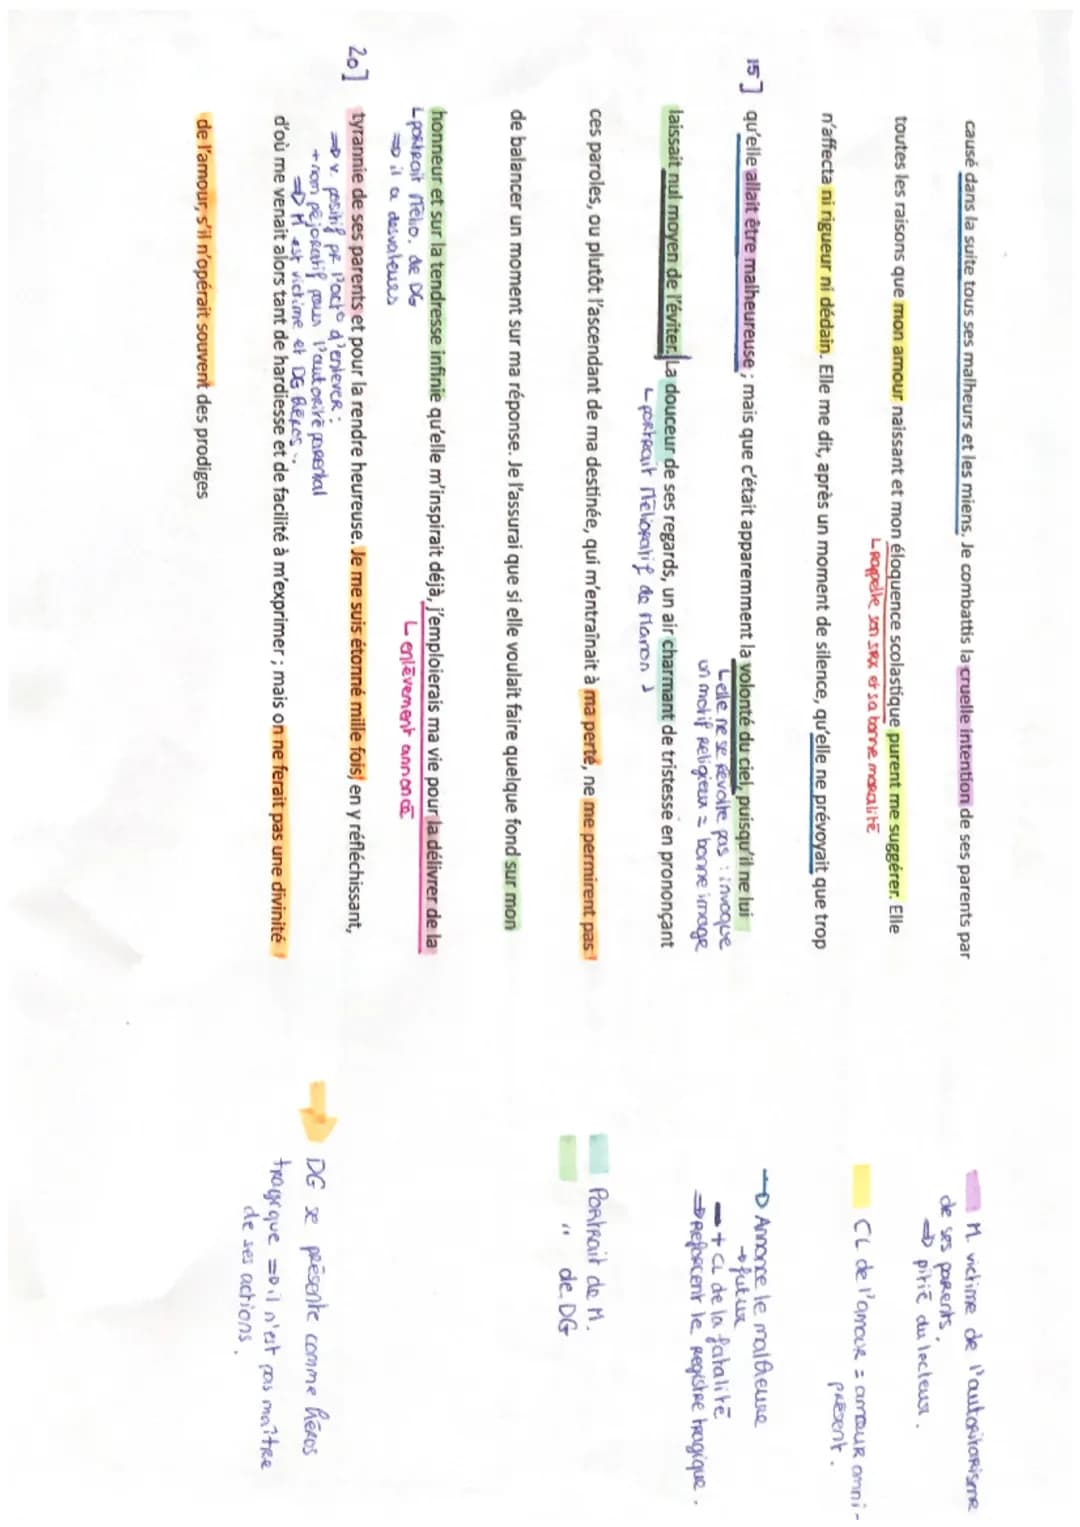 causé dans la suite tous ses malheurs et les miens. Je combattis la cruelle intention de ses parents par
toutes les raisons que mon amour naissant et mon éloquence scolastique purent me suggérer. Elle
↳ rappelle son sex et sa bonne moralité
n'affecta ni rigueur ni dédain. Elle me dit, après un moment de silence, qu'elle ne prévoyait que trop
15] qu'elle allait être malheureuse ; mais que c'était apparemment la volonté du ciel, puisqu'il ne lui
↳ elle ne se révolte pas : invoque
un motif religieux = bonne image
laissait nul moyen de l'éviter. La douceur de ses regards, un air charmant de tristesse en prononçant
↳ portrait mélioratif de Manon
ces paroles, ou plutôt l'ascendant de ma destinée, qui m'entraînait à ma perte, ne me permirent pas
de balancer un moment sur ma réponse. Je l'assurai que si elle voulait faire quelque fond sur mon
honneur et sur la tendresse infinie qu'elle m'inspirait déjà, j'emploierais ma vie pour la délivrer de la
↳ portrait mélio. de DG
⇒ il a des valeurs
↳ enlèvement annoncé
20] tyrannie de ses parents et pour la rendre heureuse. Je me suis étonné mille fois, en y réfléchissant,
⇒ v. positif pr l'acte d'enlever :
+ nom péjoratif pour l'autorité parental
⇒ M est victime et DG héros.
d'où me venait alors tant de hardiesse et de facilité à m'exprimer ; mais on ne ferait pas une divinité
de l'amour, s'il n'opérait souvent des prodiges
M. victime de l'autoritarisme
de ses parents.
⇒ pitié du lecteur.
CL de l'amour = amour omni-
présent.
→ Annonce le malheure
→ futur
→ + CL de la fatalité
⇒ Reforcent le registre tragique.
Portrait de M.
" de DG
DG se présente comme héros
tragique ⇒ il n'est pas maître
de ses actions.